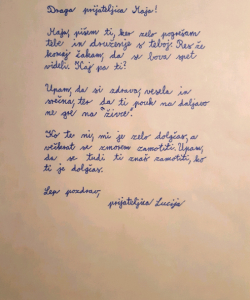 Draga prijateljica Maja!
Maja, pišem ti, ker zelo pogrešam
tebe in druženje s teboj. Res že
komaj čakam, da se bova spet
videli. Kaj pa ti?
Upam, da si zdrava, vesela in
srečna, ter da ti pouk na daljavo
ne gre na živce.
Ko te ni, mi je zelo dolgčas, a
večkrat se zmorem zamotiti. Upam,
da se tudi ti znaš zamotiti, ko
ti je dolgčas.
Lep pozdrav,
prijateljica Lucija